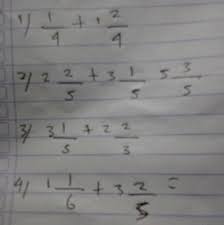 1) 1 1/4 + 1 2/4
2) 2 2/5 + 3 1/5 5 3/5
3) 3 1/5 + 2 2/3
4) 1 1/6 + 3 2/5 =